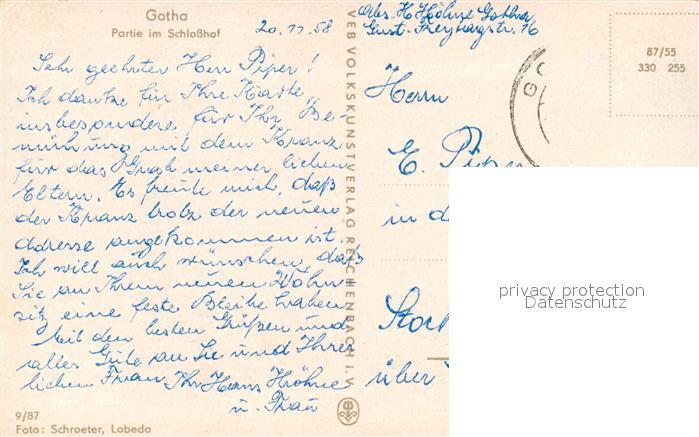 Gotha
Partie im Schloßhof
20. 11. 58
Sehr geehrter Herr Piper!
Ich danke für Ihre Karte,
insbesondere für Ihr Be-
mühung mit dem Kranz
für das Grab meiner lieben
Eltern. Es freute mich, daß
der Kranz trotz der neuen
Adresse angekommen ist.
Ich will auch wünschen, daß
Sie an Ihrem neuen Wohn
sitz eine feste Bleibe haben
Mit den besten Grüßen und
alles Gute an Sie und Ihrer
lieben Frau Ihr Hans Höhne
u. Frau
9/87
Foto: Schroeter, Lobeda
VEB VOLKSKUNSTVERLAG REICHENBACH i. V.
Abs. H. Höhne Gotha
Gust. Freytagstr. 16
87/55
330 255
GO
Herrn
E. Piper
in d
Stor
über
privacy protection
Datenschutz